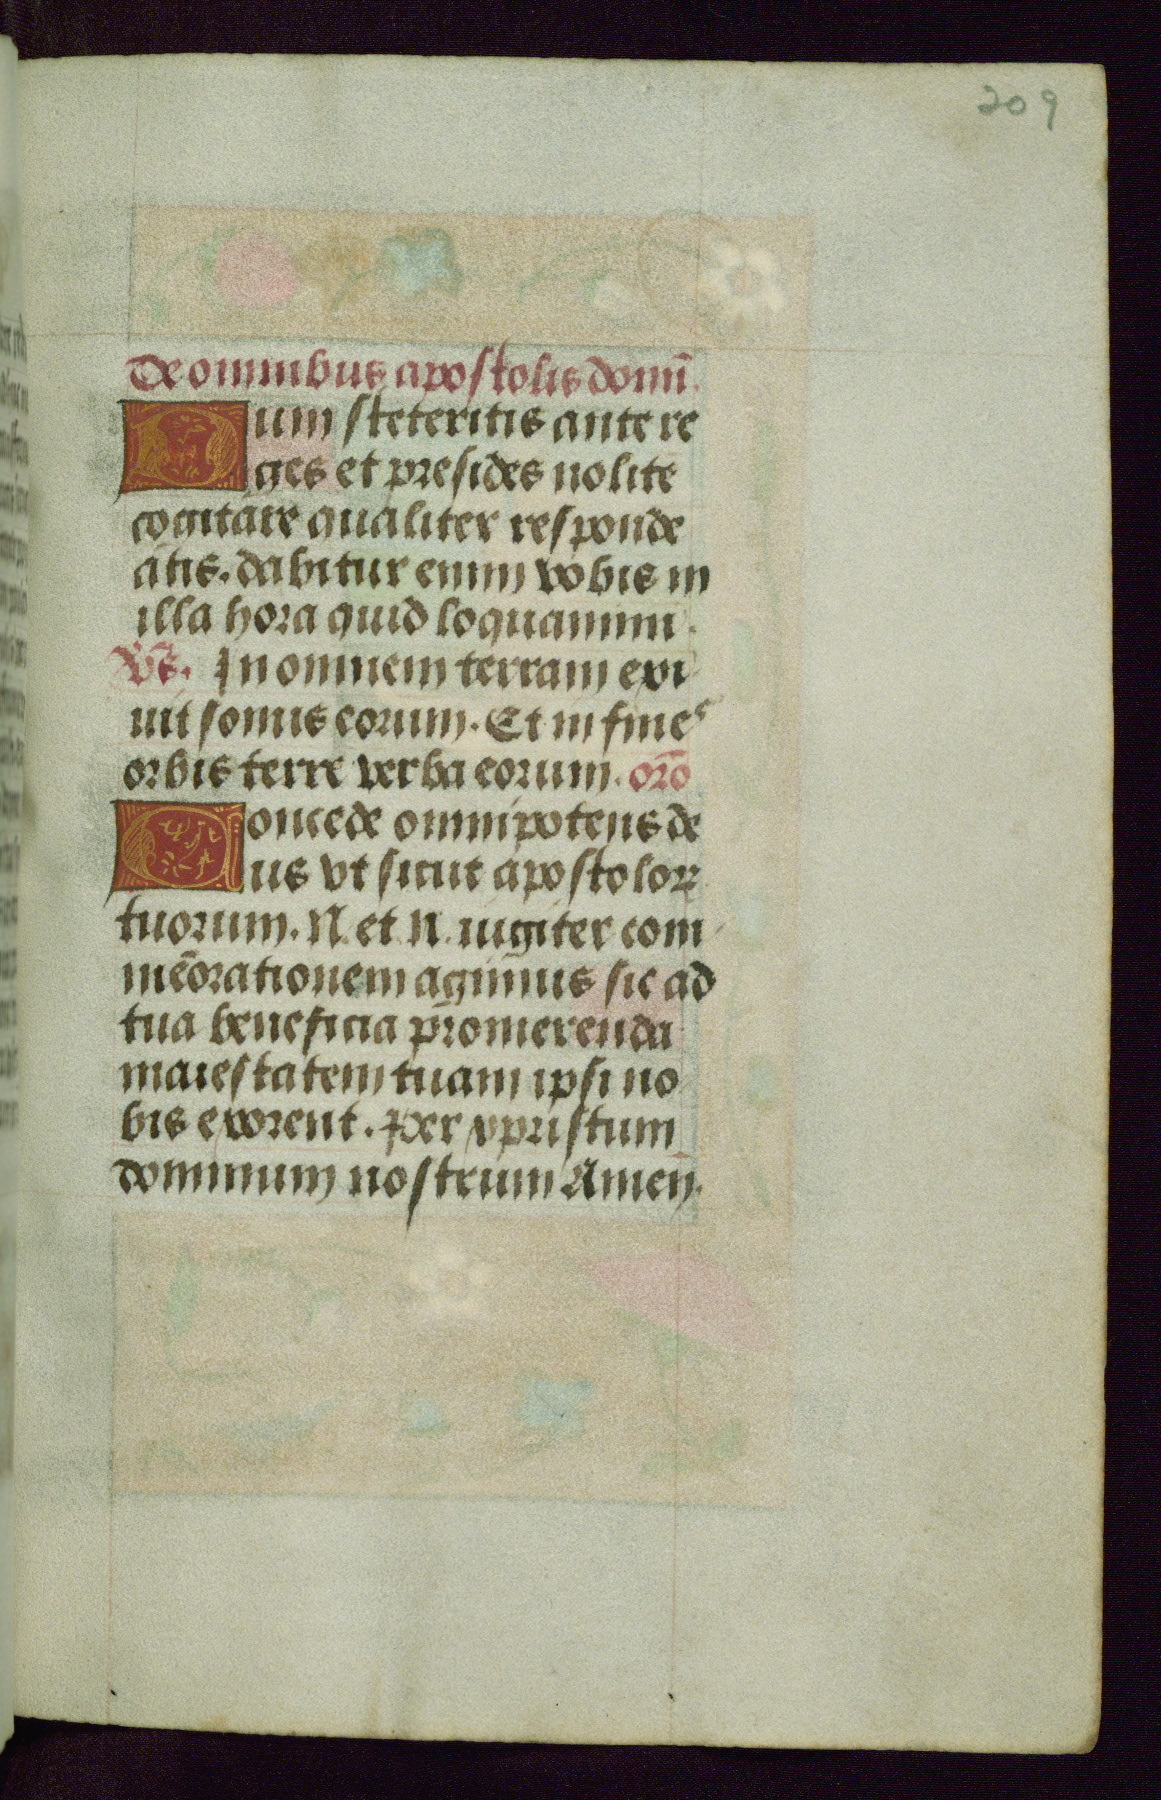 209
De omnibus apostolis domī.
Dum steteritis ante re
ges et presides nolite
cogitare qualiter responde
atis. dabitur enim vobis in
illa hora quid loquamini.
Vs. In omnem terram exi
uit sonus eorum. Et in fines
orbis terre verba eorum. orō
Concede omnipotens de
us vt sicut apostoloꝝ
tuorum. N. et N. iugiter com
mēorationem agimus sic ad
tua beneficia promerenda
maiestatem tuam ipsi no
bis exorent. Per xpristum
dominum nostrum Amen.